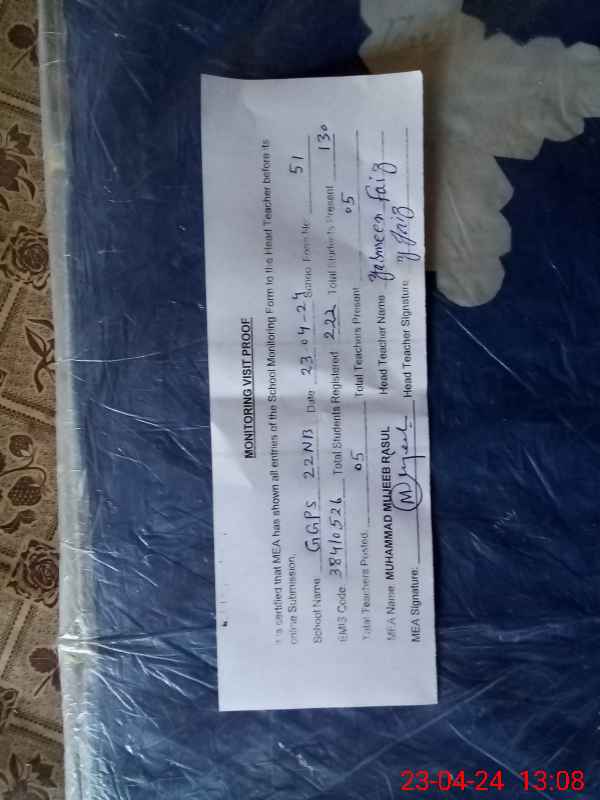 MONITORING VISIT PROOF
It is certified that MEA has shown all entries of the School Monitoring Form to the Head Teacher before its
online Submission.
School Name GGPS 22NB Date: 23-04-24 School Form No: 51
EMIS Code 38410526 Total Students Registered 222 Total Students Present 130
Total Teachers Posted: 05 Total Teachers Present 05
MEA Name MUHAMMAD MUJEEB RASUL Head Teacher Name Yasmeen Faiz
MEA Signature: Mujeeb Head Teacher Signature Y Faiz
23-04-24 13:08